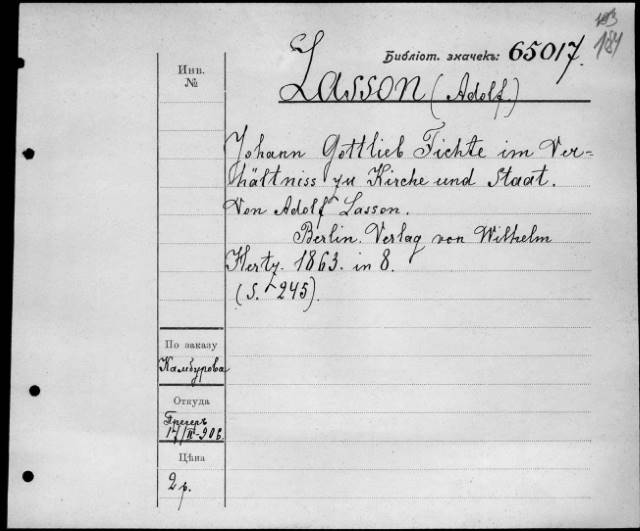 184
Библіот. значекъ: 65017.
Инв.
№
Lasson (Adolf.)
Johann Gottlieb Fichte im Ver=
hältniss zu Kirche und Staat.
Von Adolf Lasson.
Berlin. Verlag von Wilhelm
Hertz. 1863. in 8.
(S. 245).
По заказу
Камбурова
Откуда
Грегеръ
Цѣна
2 р.